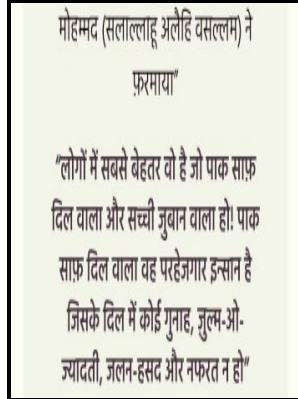 मोहम्मद (सलाल्लाहू अलैहि वसल्लम) ने
फ़रमाया"
"लोगों में सबसे बेहतर वो है जो पाक साफ़
दिल वाला और सच्ची जुबान वाला हो! पाक
साफ़ दिल वाला वह परहेजगार इन्सान है
जिसके दिल में कोई गुनाह, जुल्म-ओ-
ज्यादती, जलन-हसद और नफरत न हो"